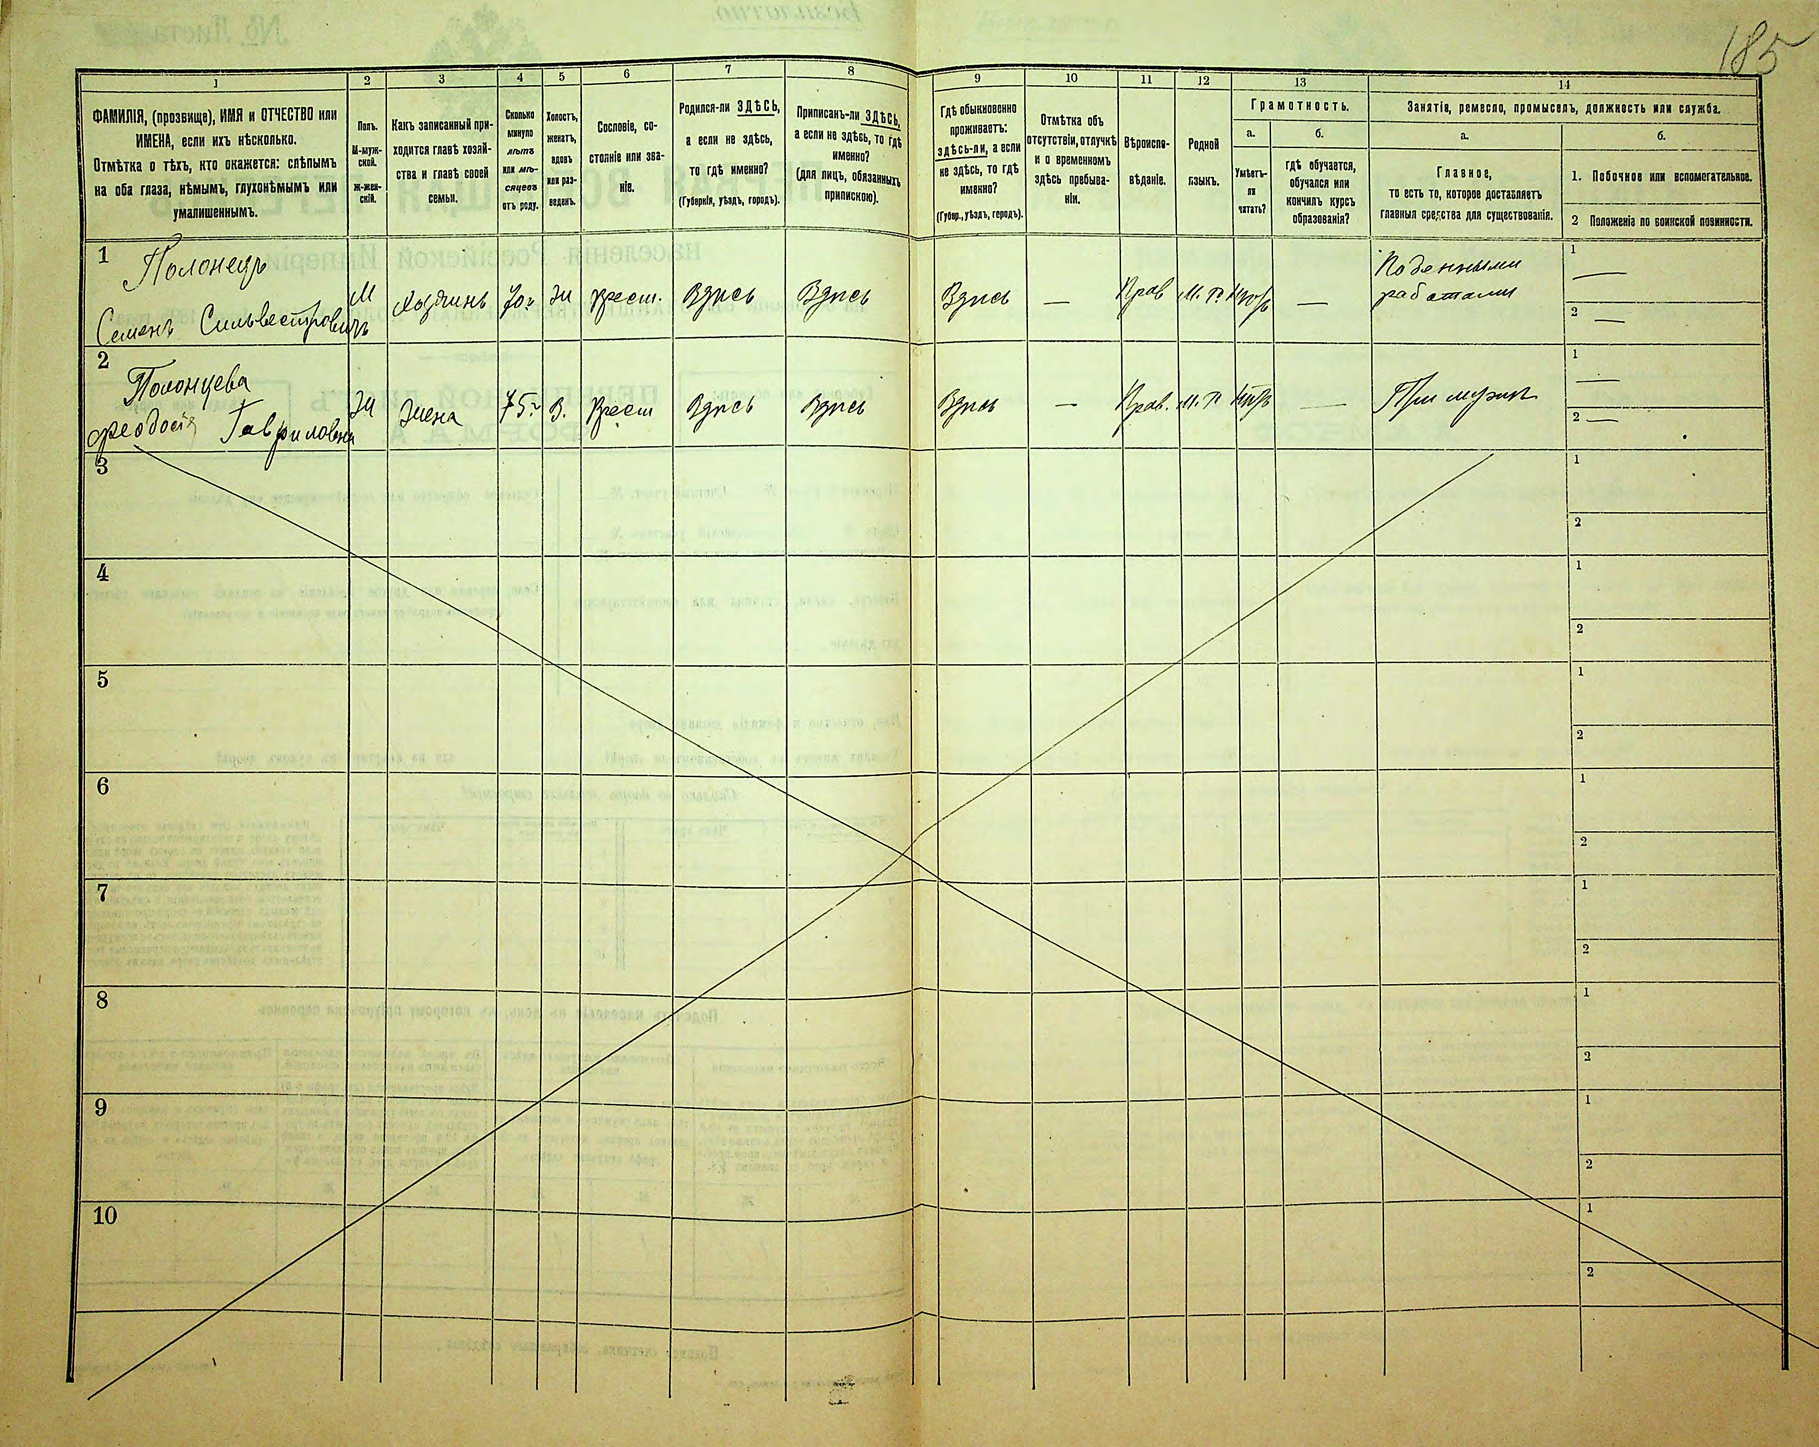 185
1
2
3
4
5
6
7
8
9
10
11
12
13
14
ФАМИЛІЯ, (прозвище), ИМЯ и ОТЧЕСТВО или
ИМЕНА, если ихъ нѣсколько.
Отмѣтка о тѣхъ, кто окажется: слѣпымъ
на оба глаза, нѣмымъ, глухонѣмымъ или
умалишеннымъ.
Полъ.
М-муж-
ской.
Ж-жен-
скій.
Какъ записанный при-
ходится главѣ хозяй-
ства и главѣ своей
семьи.
Сколько
минуло
лѣтъ
или мѣ-
сяцевъ
отъ роду.
Холостъ,
женатъ,
вдовъ
или раз-
веденъ.
Сословіе, со-
стояніе или зва-
ніе.
Родился-ли ЗДѢСЬ,
а если не здѣсь,
то гдѣ именно?
(Губернія, уѣздъ, городъ).
Приписанъ-ли ЗДѢСЬ,
а если не здѣсь, то гдѣ
именно?
(для лицъ, обязанныхъ
припискою).
Гдѣ обыкновенно
проживаетъ:
здѣсь-ли, а если
не здѣсь, то гдѣ
именно?
(Губер., уѣздъ, городъ).
Отмѣтка объ
отсутствіи, отлучкѣ
и о временномъ
здѣсь пребыва-
ніи.
Вѣроиспо-
вѣданіе.
Родной
языкъ.
Грамотность.
а.
Умѣетъ-
ли
читать?
б.
гдѣ обучается,
обучался или
кончилъ курсъ
образованія?
Занятія, ремесло, промыселъ, должность или служба.
а.
Главное,
то есть то, которое доставляетъ
главныя средства для существованія.
б.
1. Побочное или вспомогательное.
2 Положеніе по воинской повинности.
1
Полонецъ
Семенъ Сильвестровичъ
М
Хозяинъ
70
Ж
Крест.
Здѣсь
Здѣсь
Здѣсь
—
Прав
М. Р.
—
Поденными
работами
1 —
2 —
2
Полонцева
Феодосія Гавриловна
Ж
Жена
75
З.
Крест
Здѣсь
Здѣсь
Здѣсь
—
Прав.
М. Р.
—
При мужѣ
1 —
2 —
3
1
2
4
1
2
5
1
2
6
1
2
7
1
2
8
1
2
9
1
2
10
1
2